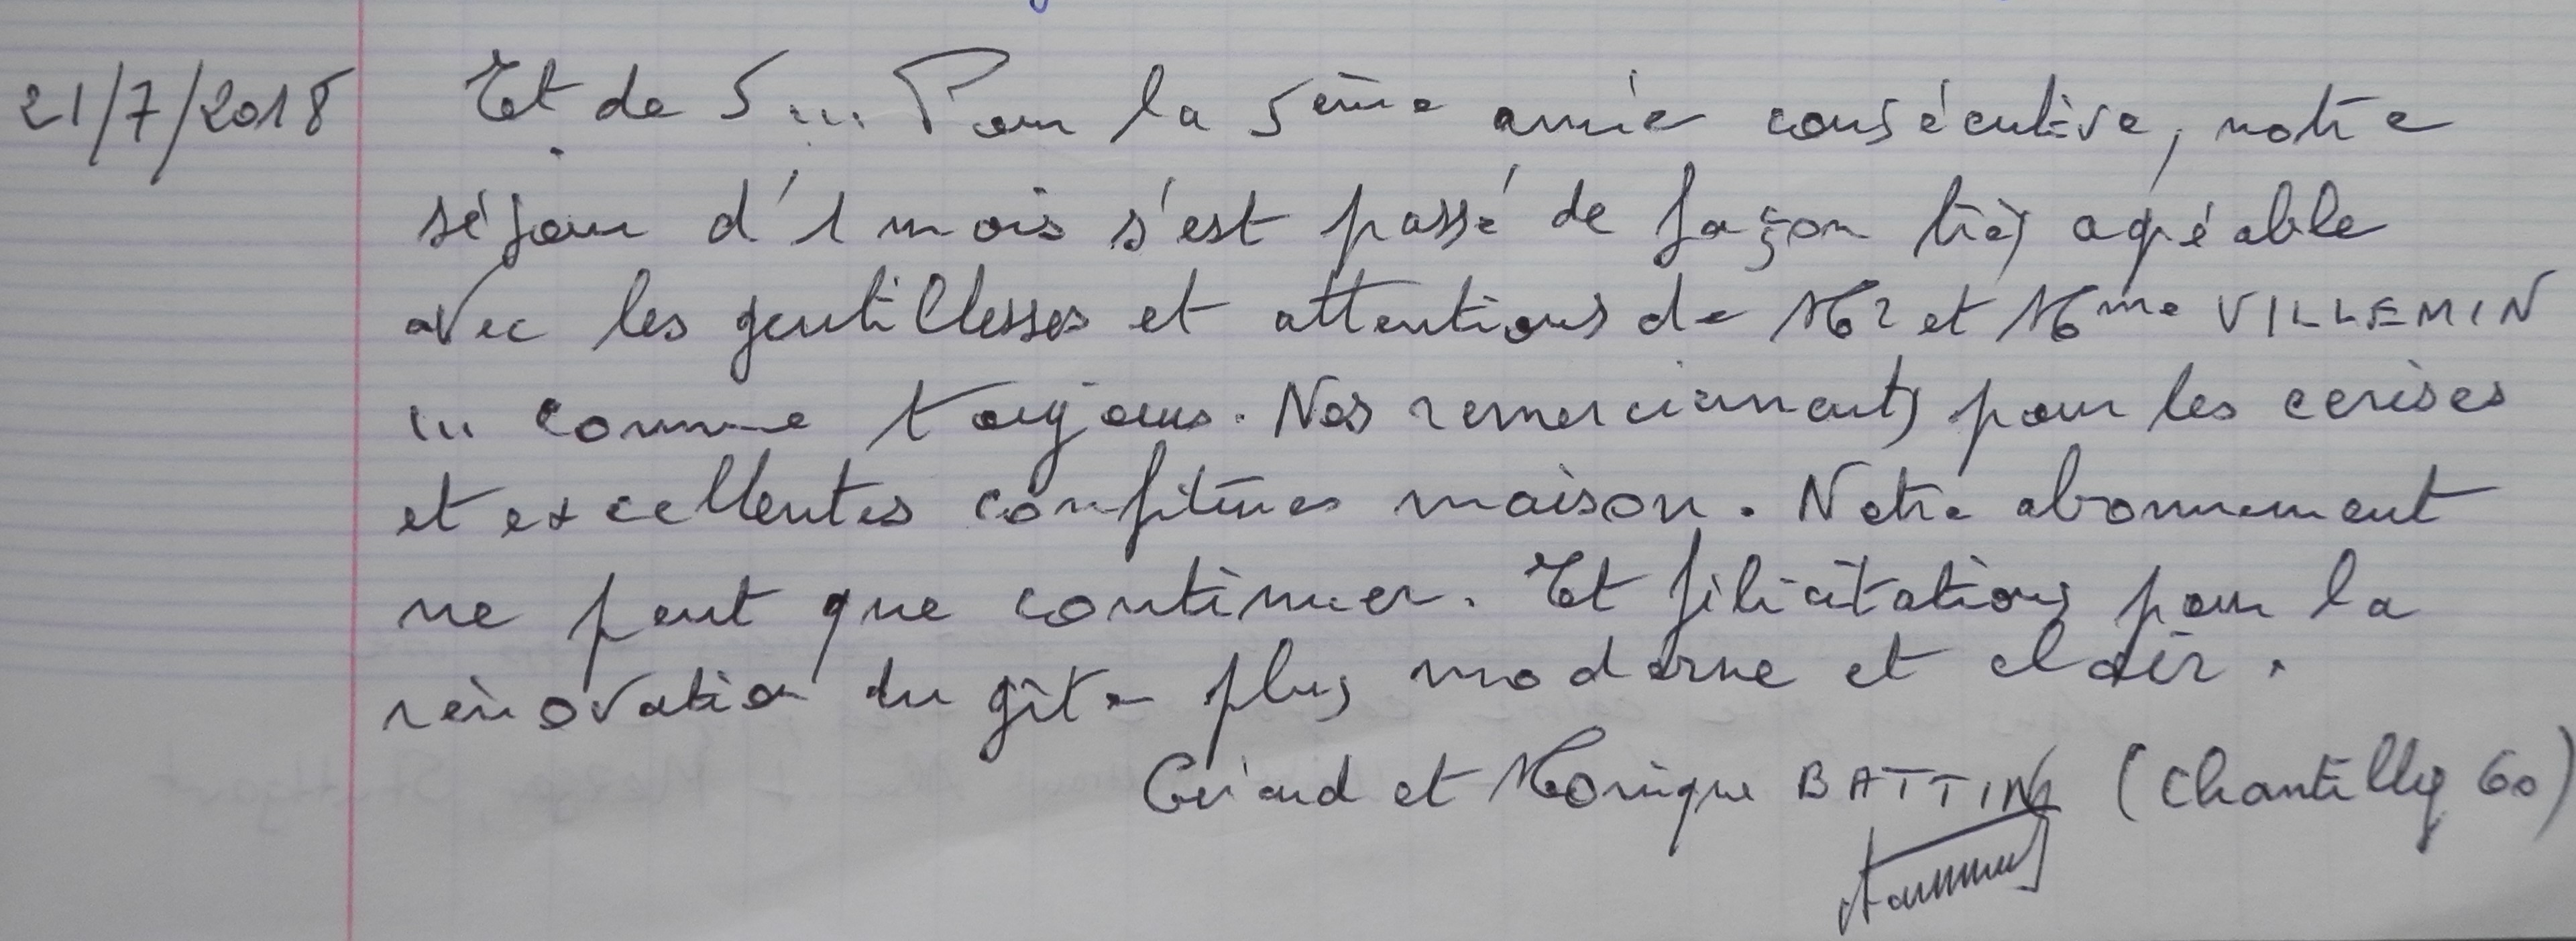 21/7/2018 Et de 5 ... Pour la 5ème année consécutive, notre
séjour d'1 mois s'est passé de façon très agréable
avec les gentillesses et attentions de Mr et Mme VILLEMIN
... comme toujours. Nos remerciements pour les cerises
et excellentes confitures maison. Notre abonnement
ne peut que continuer. Et félicitations pour la
rénovation du gîte plus moderne et clair.
Gérard et Monique BATTING (Chantilly 60)